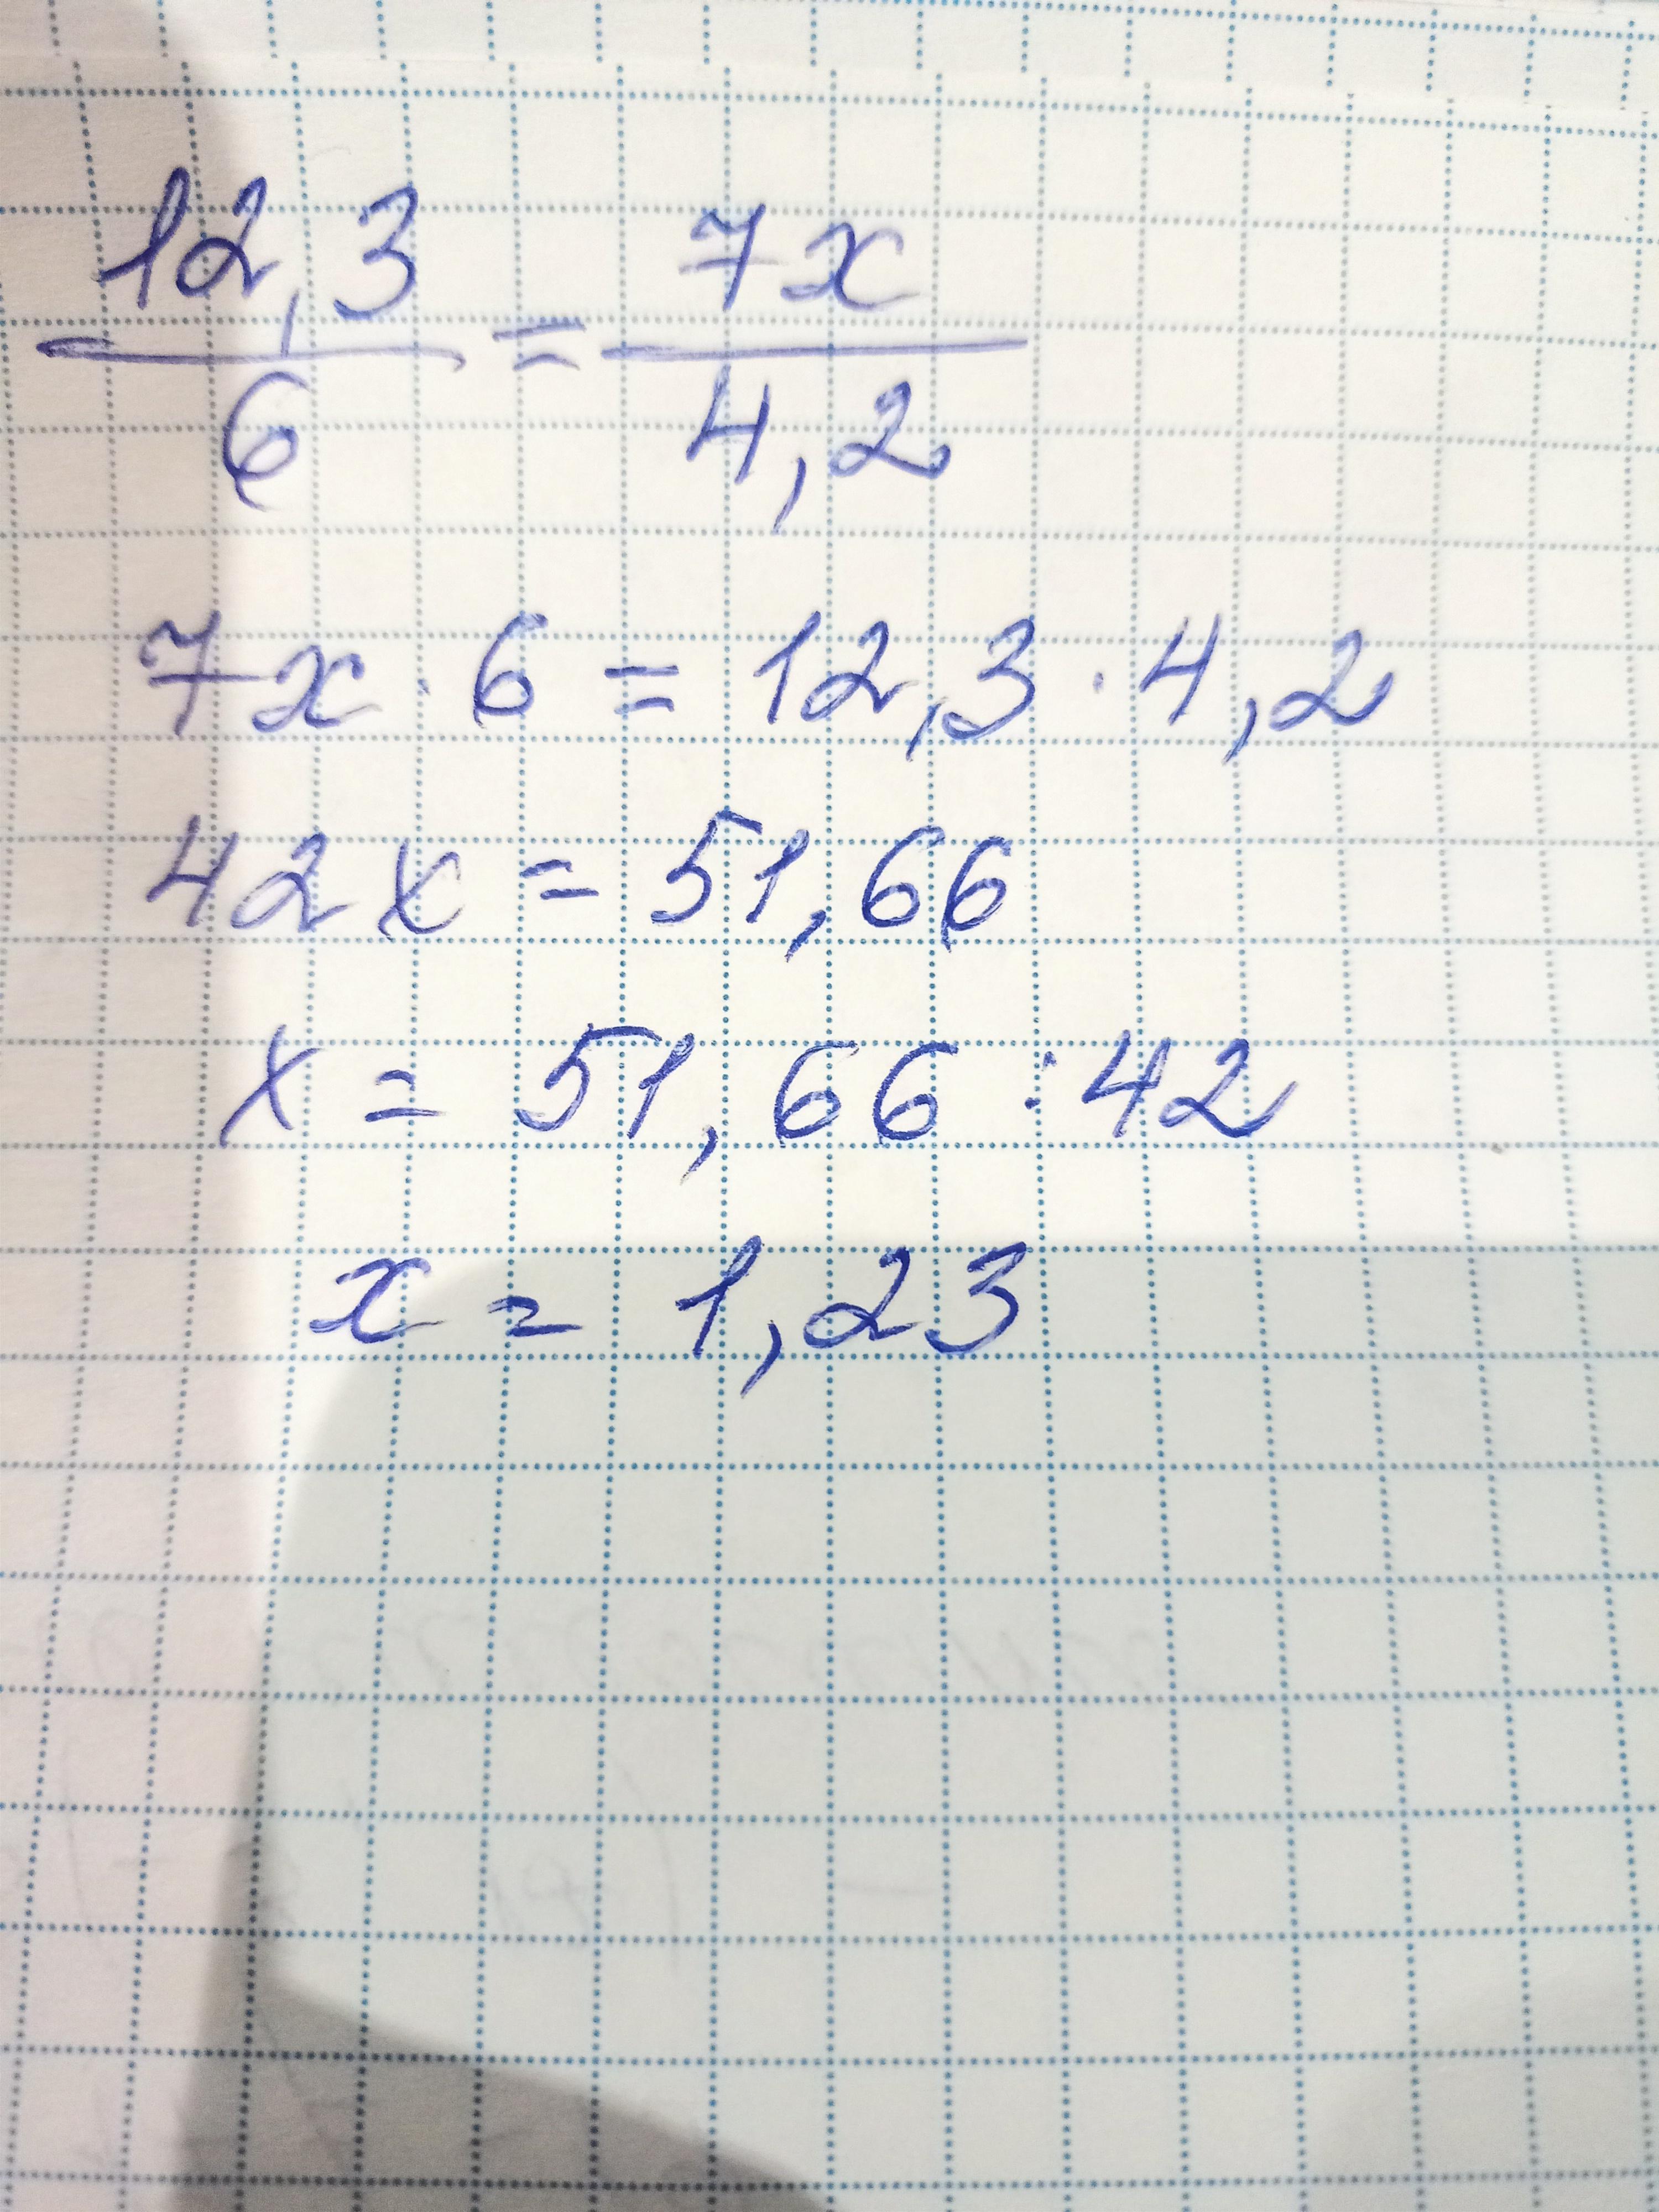 12,3/6 = 7x/4,2
7x · 6 = 12,3 · 4,2
42x = 51,66
x = 51,66 : 42
x = 1,23